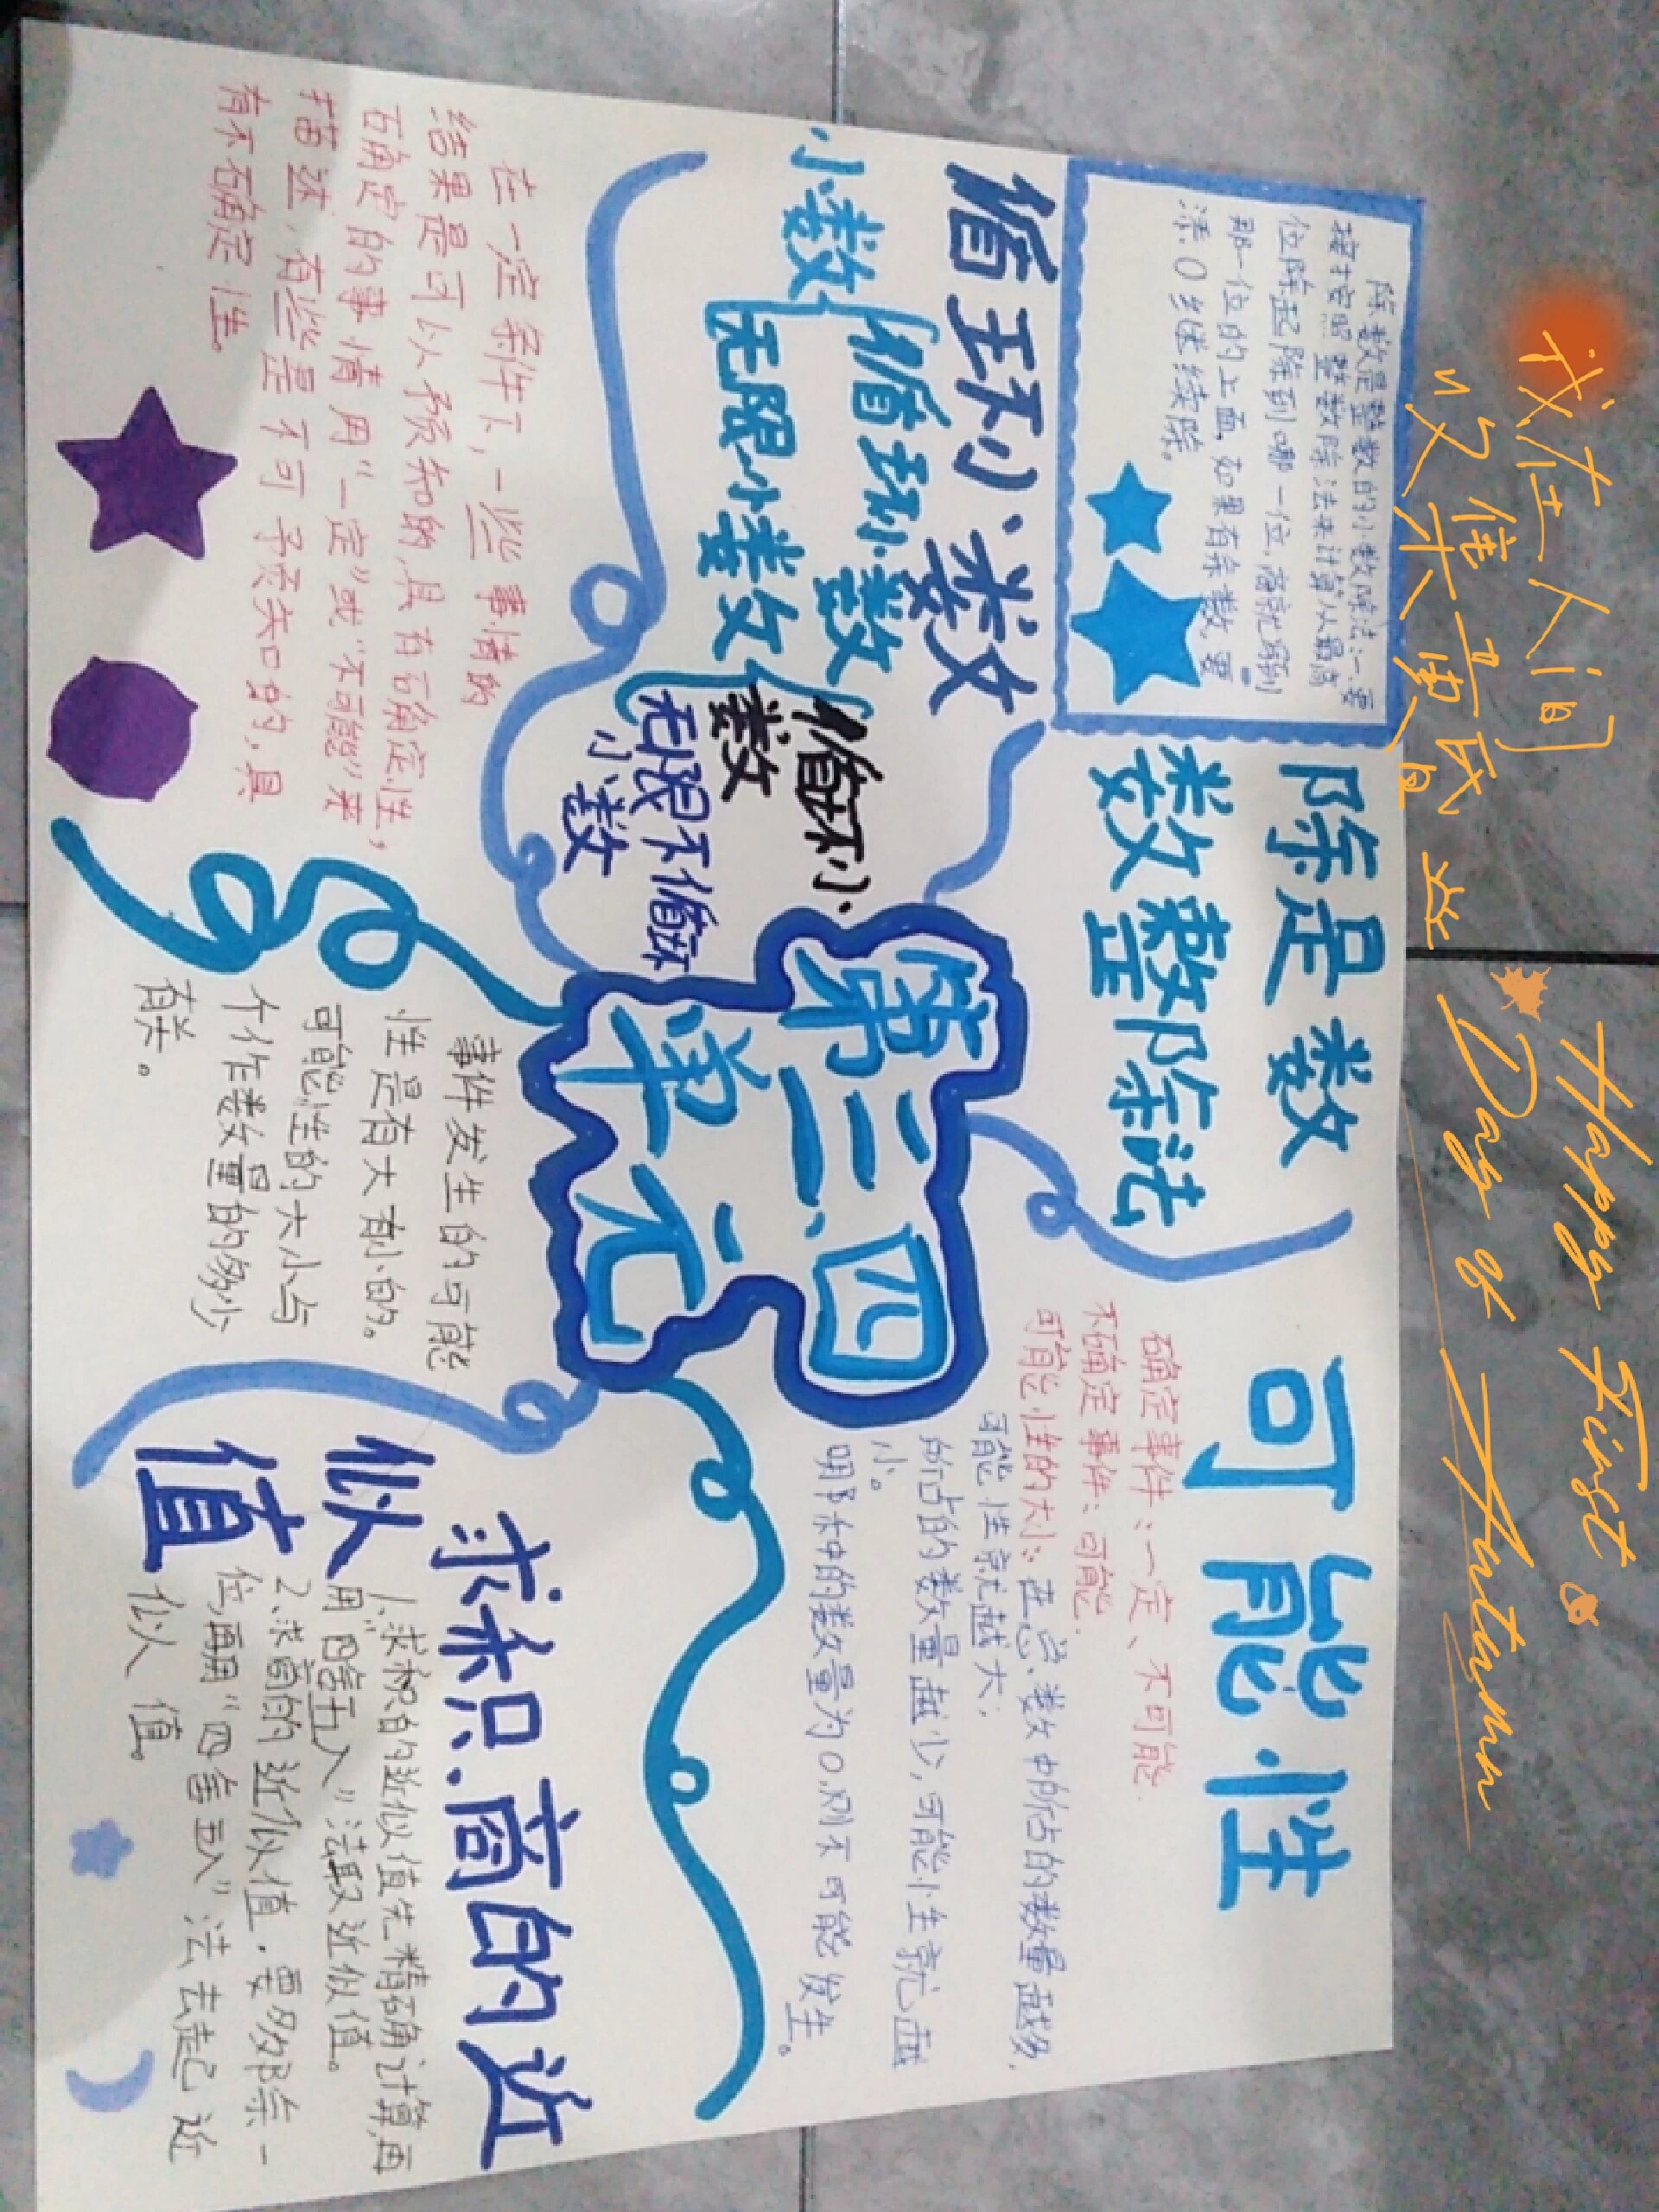 我在人间
贩卖黄昏
Happy First
Day of Autumn
除数是整数的小数除法:一要
接按照整数除法来计算从最高
位除起除到哪一位,商就写到
那一位的上面,如果有余数,要
添0多继续除。
除是数
数整除法
可能性
确定事件:一定、不可能
不确定事件:可能.
可能性的大小:在总数中所占的数量越多,
可能性就越大;
所占的数量越少,可能性就越
小。
明那种的数量为0,则不可能发生。
循环小数
小数
循环小数
无限小数
循环小
数
无限不循环
小数
第三、四
单元
在一定条件下,一些事情的
结果是可以预知的,具有确定性,
确定的事情用“一定”或“不可能”来
描述,有些是不可予预知的,具
有不确定性。
事件发生的可能
性是有大有小的。
可能性的大小与
个作数量的多少
有关。
求积商的近
似
值
1.求积的近似值先精确计算,再
用“四舍五入”法取近似值。
2.求商的近似值,要多除一
位,再用“四舍五入”法去起近
似值。